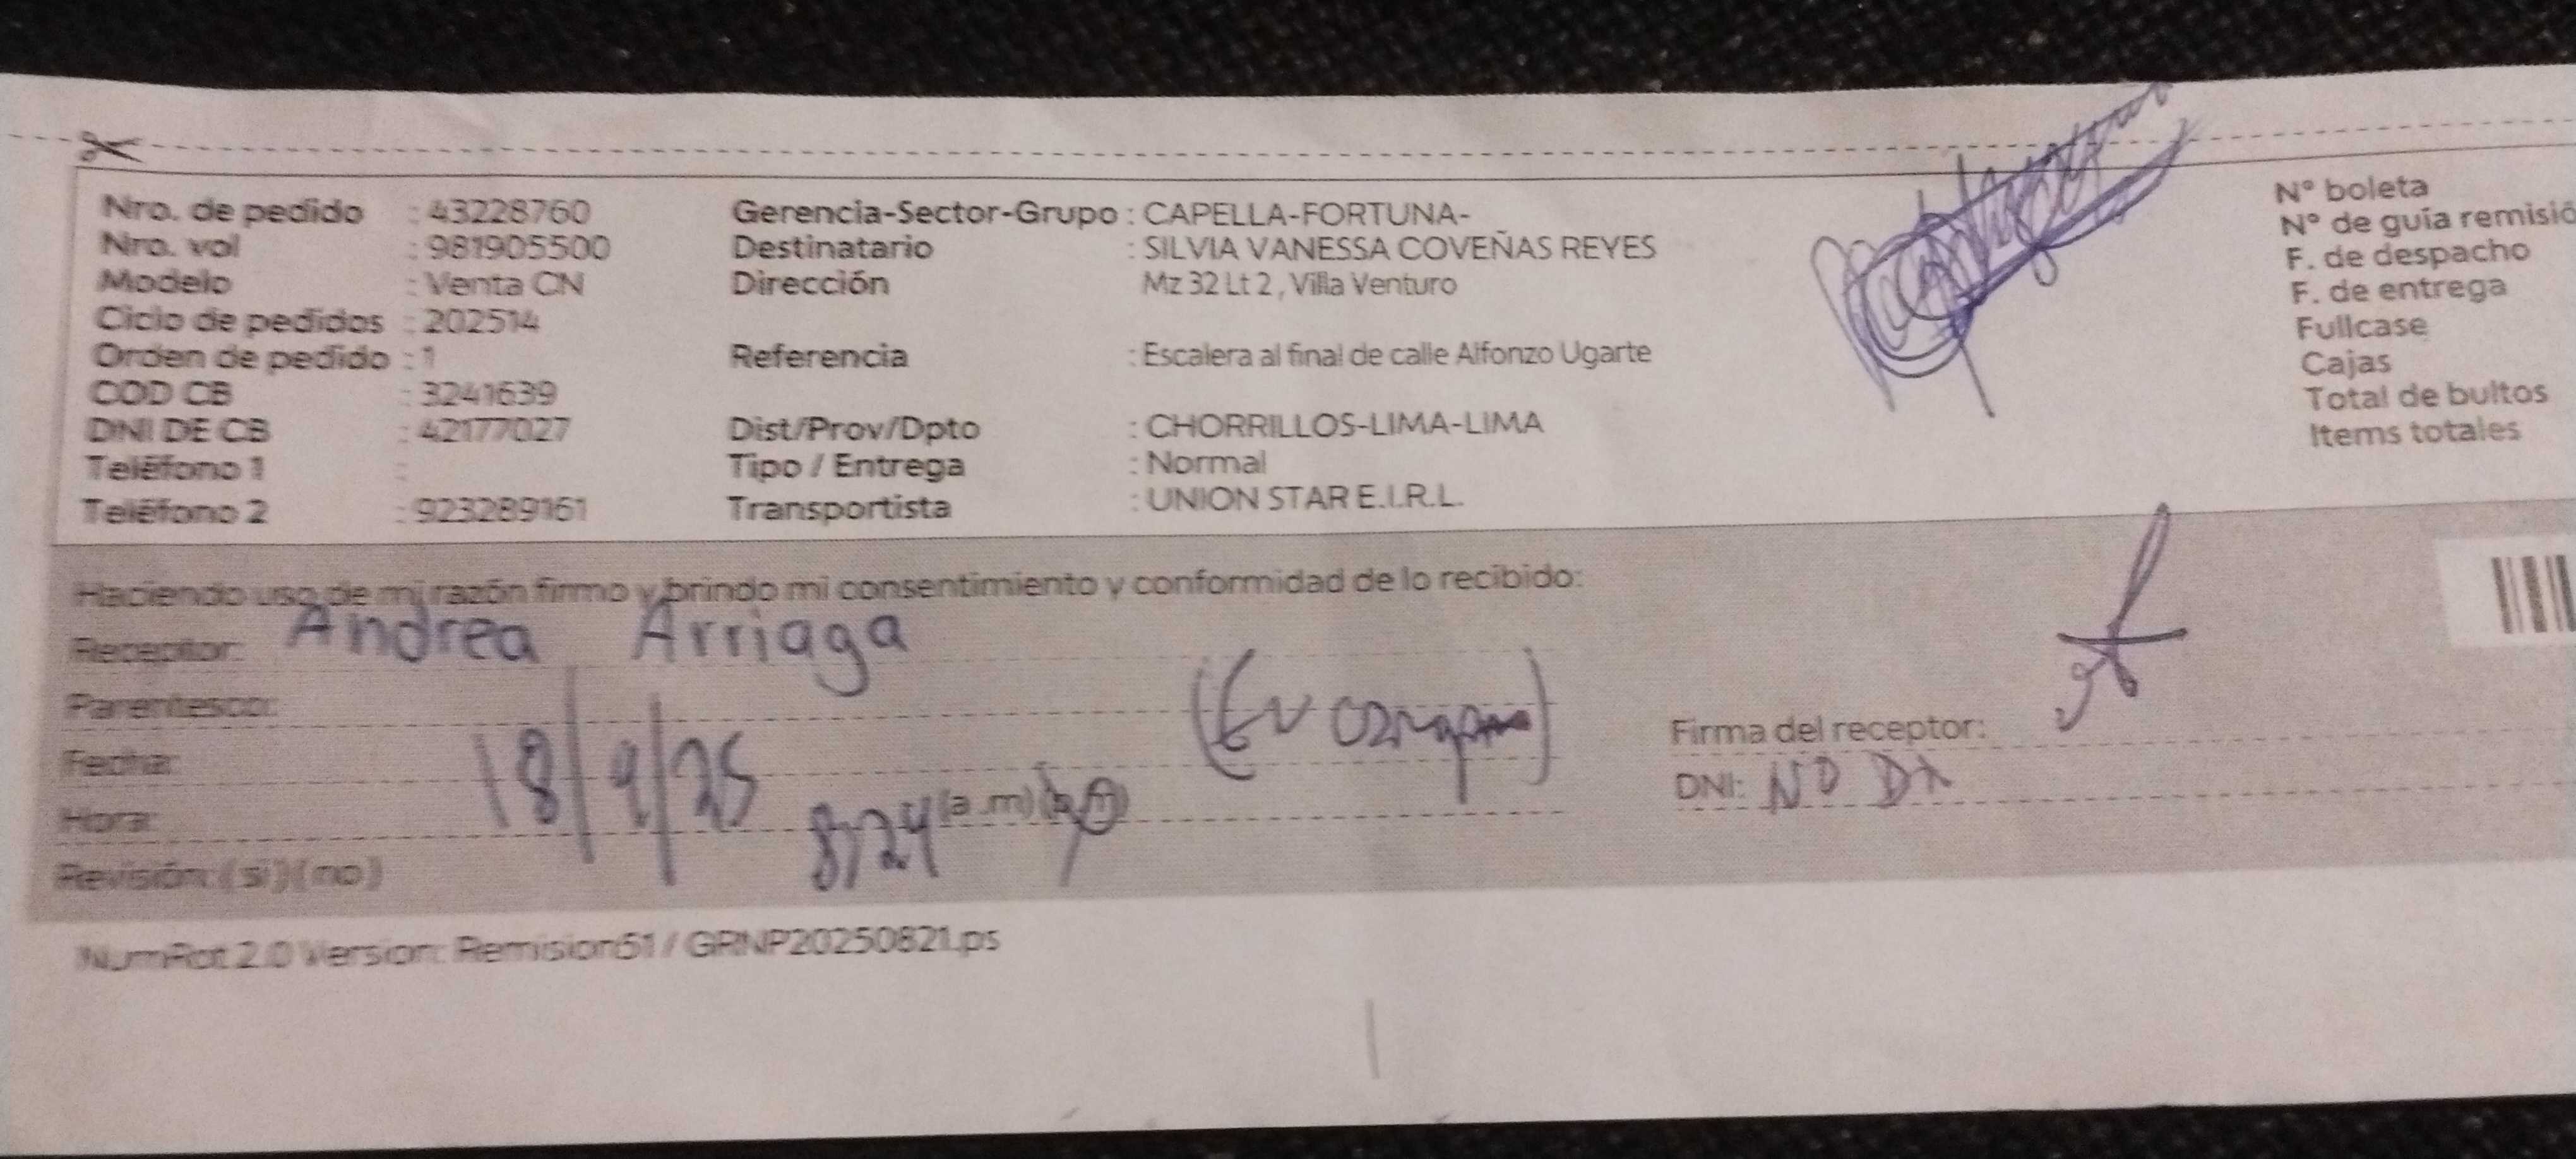 Nro. de pedido : 43228760
Nro. vol : 981905500
Modelo : Venta CN
Ciclo de pedidos : 202514
Orden de pedido : 1
COD CB : 3241639
DNI DE CB : 42177027
Teléfono 1 :
Teléfono 2 : 923289161
Gerencia-Sector-Grupo : CAPELLA-FORTUNA-
Destinatario : SILVIA VANESSA COVEÑAS REYES
Dirección Mz 32 Lt 2 , Villa Venturo
Referencia : Escalera al final de calle Alfonzo Ugarte
Dist/Prov/Dpto : CHORRILLOS-LIMA-LIMA
Tipo / Entrega : Normal
Transportista : UNION STAR E.I.R.L.
N° boleta
N° de guía remisió
F. de despacho
F. de entrega
Fullcase
Cajas
Total de bultos
Items totales
Haciendo uso de mi razón firmo y brindo mi consentimiento y conformidad de lo recibido:
Receptor: Andrea Arriaga
Parentesco:
Fecha: 18/9/25
Hora: 8:24 (a .m)
Revisión: (si) (no)
Firma del receptor:
DNI: NO DA
NumRot 2.0 Version: Remision61 / GRNP20250821.ps